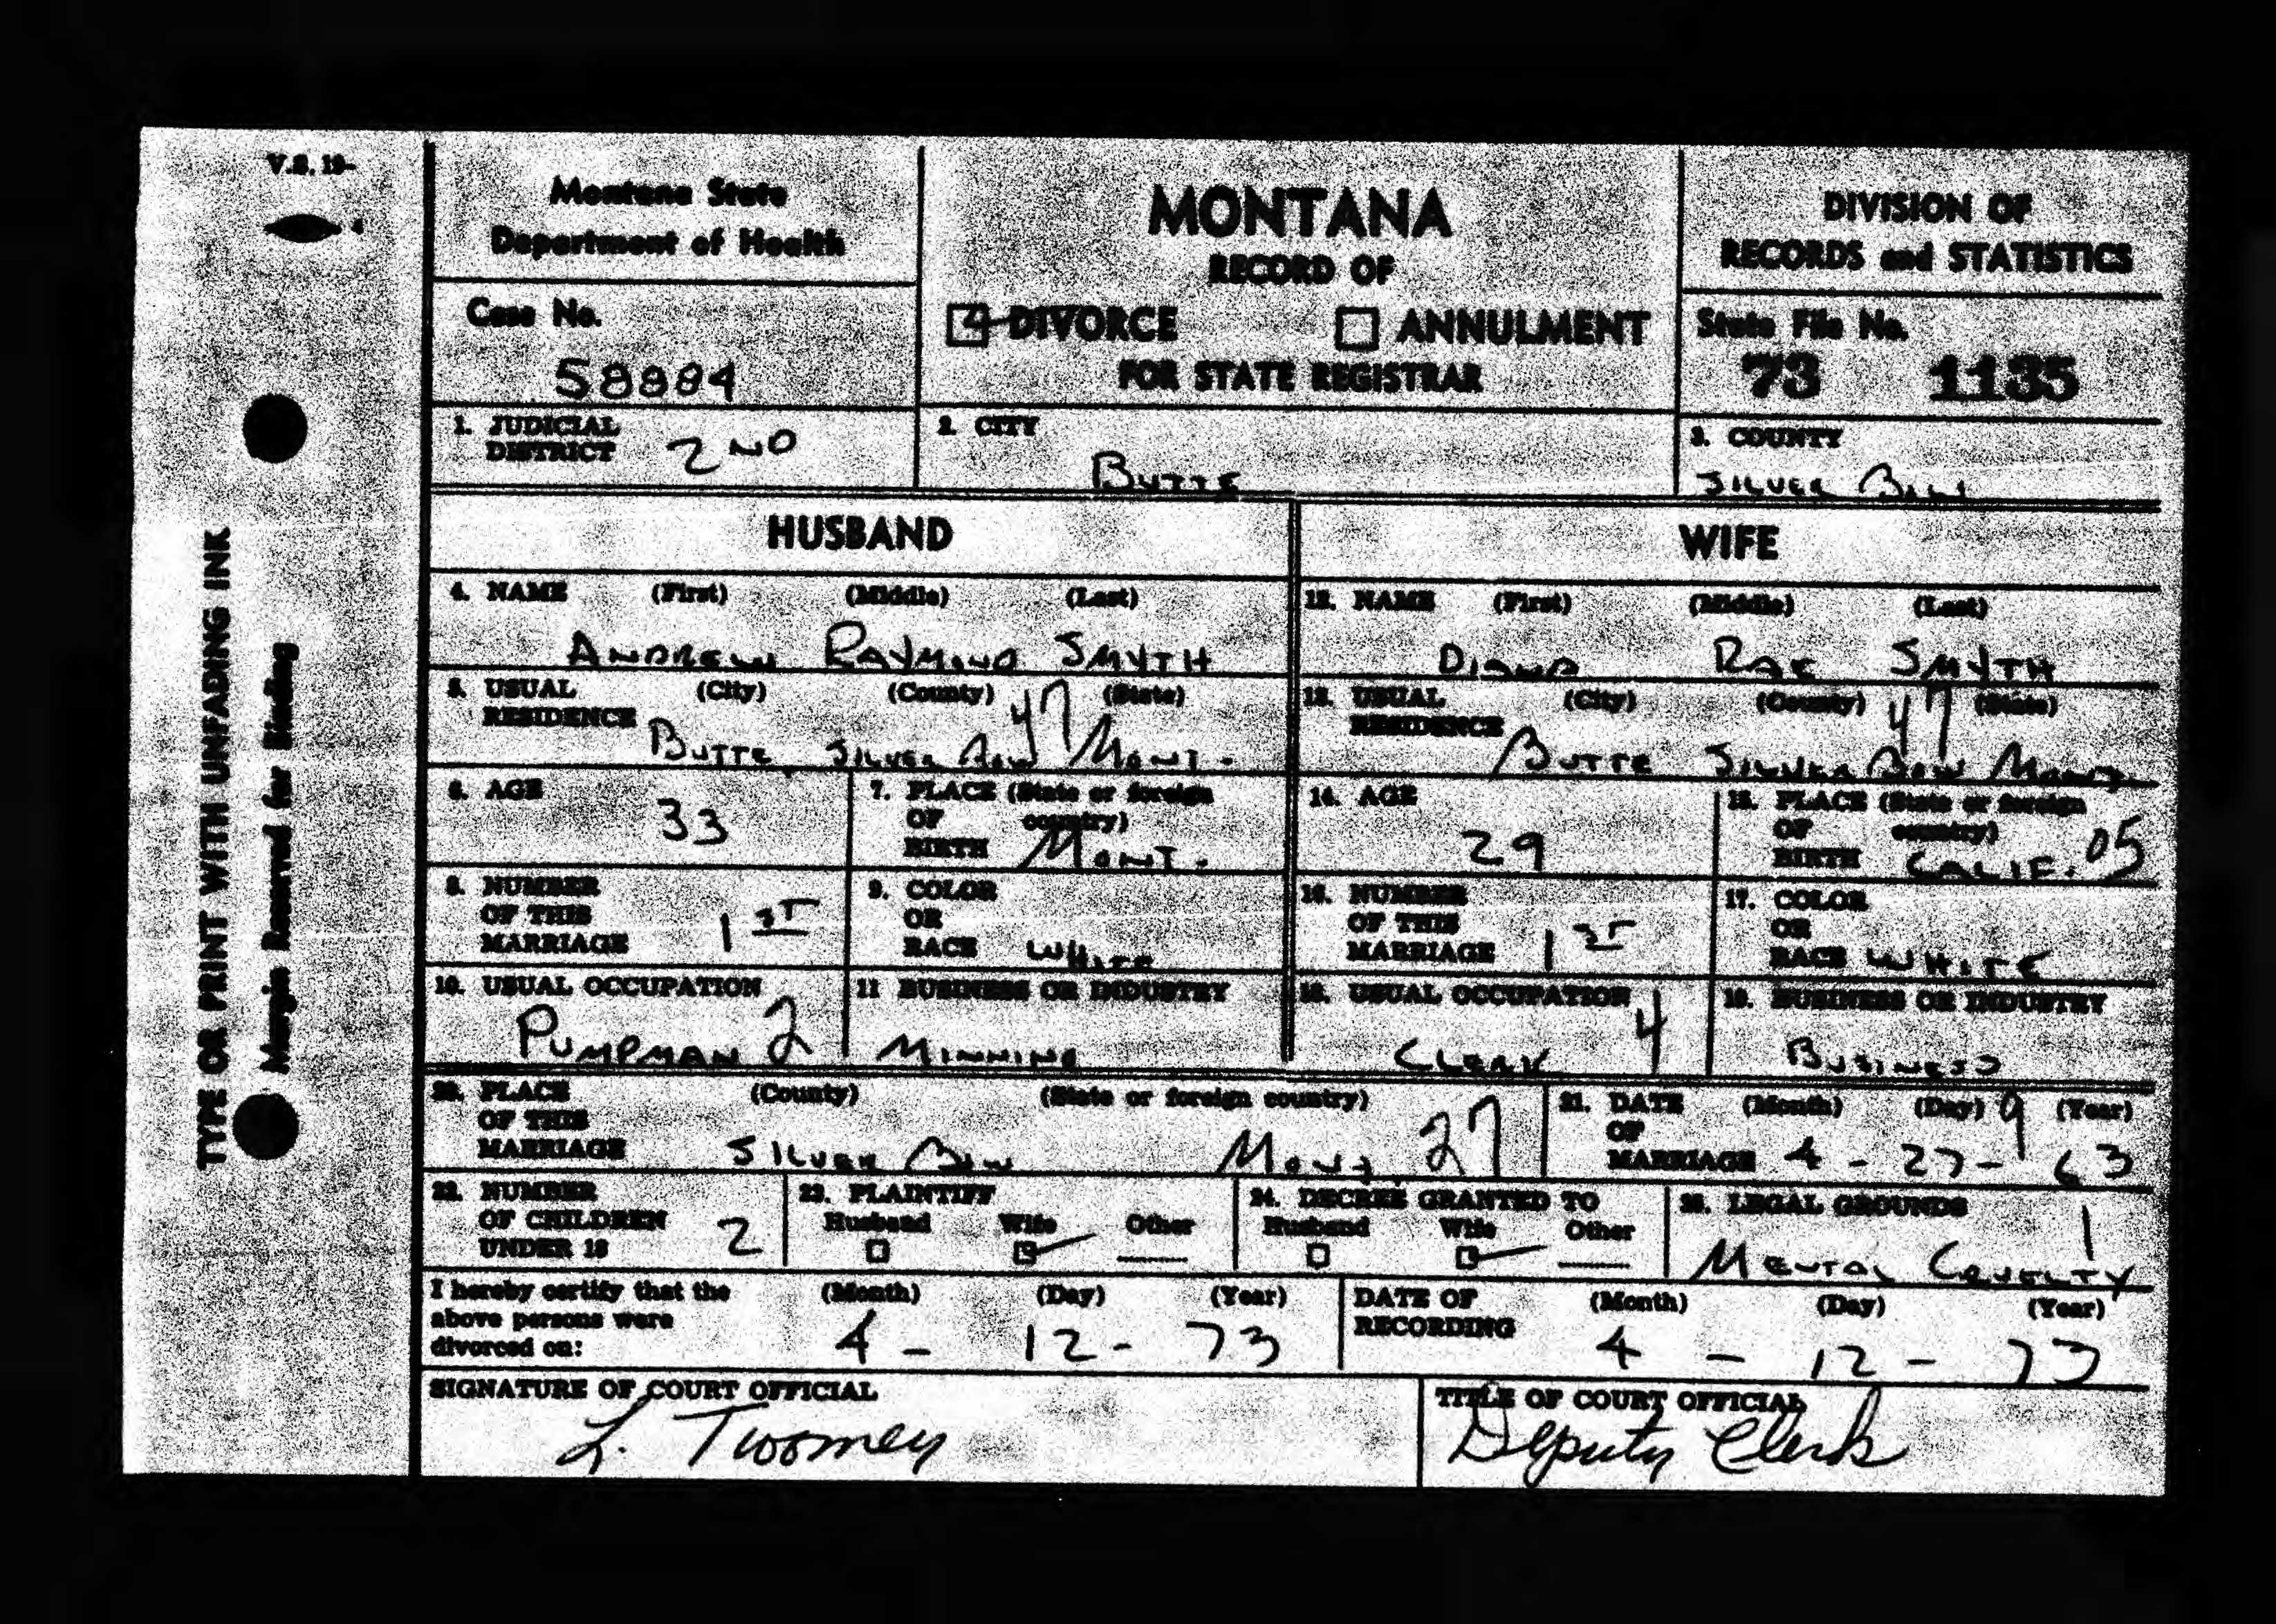 V.S. 19-
Montana State
Department of Health
MONTANA
RECORD OF
DIVORCE ANNULMENT
FOR STATE REGISTRAR
DIVISION OF
RECORDS and STATISTICS
Case No.
58884
State File No.
73 1135
1. JUDICIAL
DISTRICT 2ND
2. CITY
BUTTE
3. COUNTY
SILVER BOW
HUSBAND
WIFE
4. NAME (First) (Middle) (Last)
ANDREW RAYMOND SMYTH
12. NAME (First) (Middle) (Last)
DIANA RAE SMYTH
5. USUAL (City) (County) (State)
RESIDENCE 47
BUTTE, SILVER BOW MONT.
13. USUAL (City) (County) (State)
RESIDENCE 47
BUTTE SILVER BOW MONT.
6. AGE
33
7. PLACE (State or foreign
OF country)
BIRTH MONT.
14. AGE
29
15. PLACE (State or foreign
OF country)
BIRTH CALIF. 05
8. NUMBER
OF THIS
MARRIAGE 1ST
9. COLOR
OR
RACE WHITE
16. NUMBER
OF THIS
MARRIAGE 1ST
17. COLOR
OR
RACE WHITE
10. USUAL OCCUPATION
PUMPMAN 2
11 BUSINESS OR INDUSTRY
MINNING
18. USUAL OCCUPATION
CLERK 4
19. BUSINESS OR INDUSTRY
BUSINESS
20. PLACE (County) (State or foreign country)
OF THIS
MARRIAGE SILVER BOW MONT 27
21. DATE (Month) (Day) 9 (Year)
OF
MARRIAGE 4 - 27 - 63
22. NUMBER
OF CHILDREN
UNDER 18 2
23. PLAINTIFF
Husband Wife Other
24. DECREE GRANTED TO
Husband Wife Other
25. LEGAL GROUNDS
1
MENTAL CRUELTY
I hereby certify that the
above persons were
divorced on:
(Month) (Day) (Year)
4 - 12 - 73
DATE OF
RECORDING
(Month) (Day) (Year)
4 - 12 - 73
SIGNATURE OF COURT OFFICIAL
L. Twomey
TITLE OF COURT OFFICIAL
Deputy Clerk
TYPE OR PRINT WITH UNFADING INK
Margin Reserved for Binding